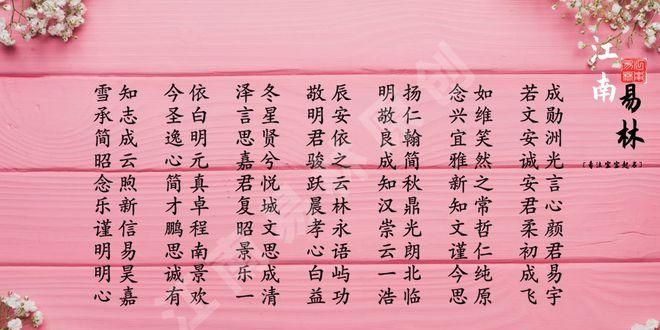 江南
易林
[专注宝宝起名]
成勋洲光言心颜君易宇
若文安诚安君柔初成飞
如维笑然之常哲仁纯原
念兴宜雅新知文谨今思
扬仁翰简秋鼎光朗北临
明敬良成知汉崇云一浩
辰安依之云林永语屿功
敬明君骏跃晨孝心白益
冬星贤兮悦城文思成清
泽言思嘉君复昭景乐一
依白明元真卓程南景欢
今圣逸心简才鹏思诚有
知志成云煦新信易昊嘉
雪承简昭念乐谨明明心
江南易林原创